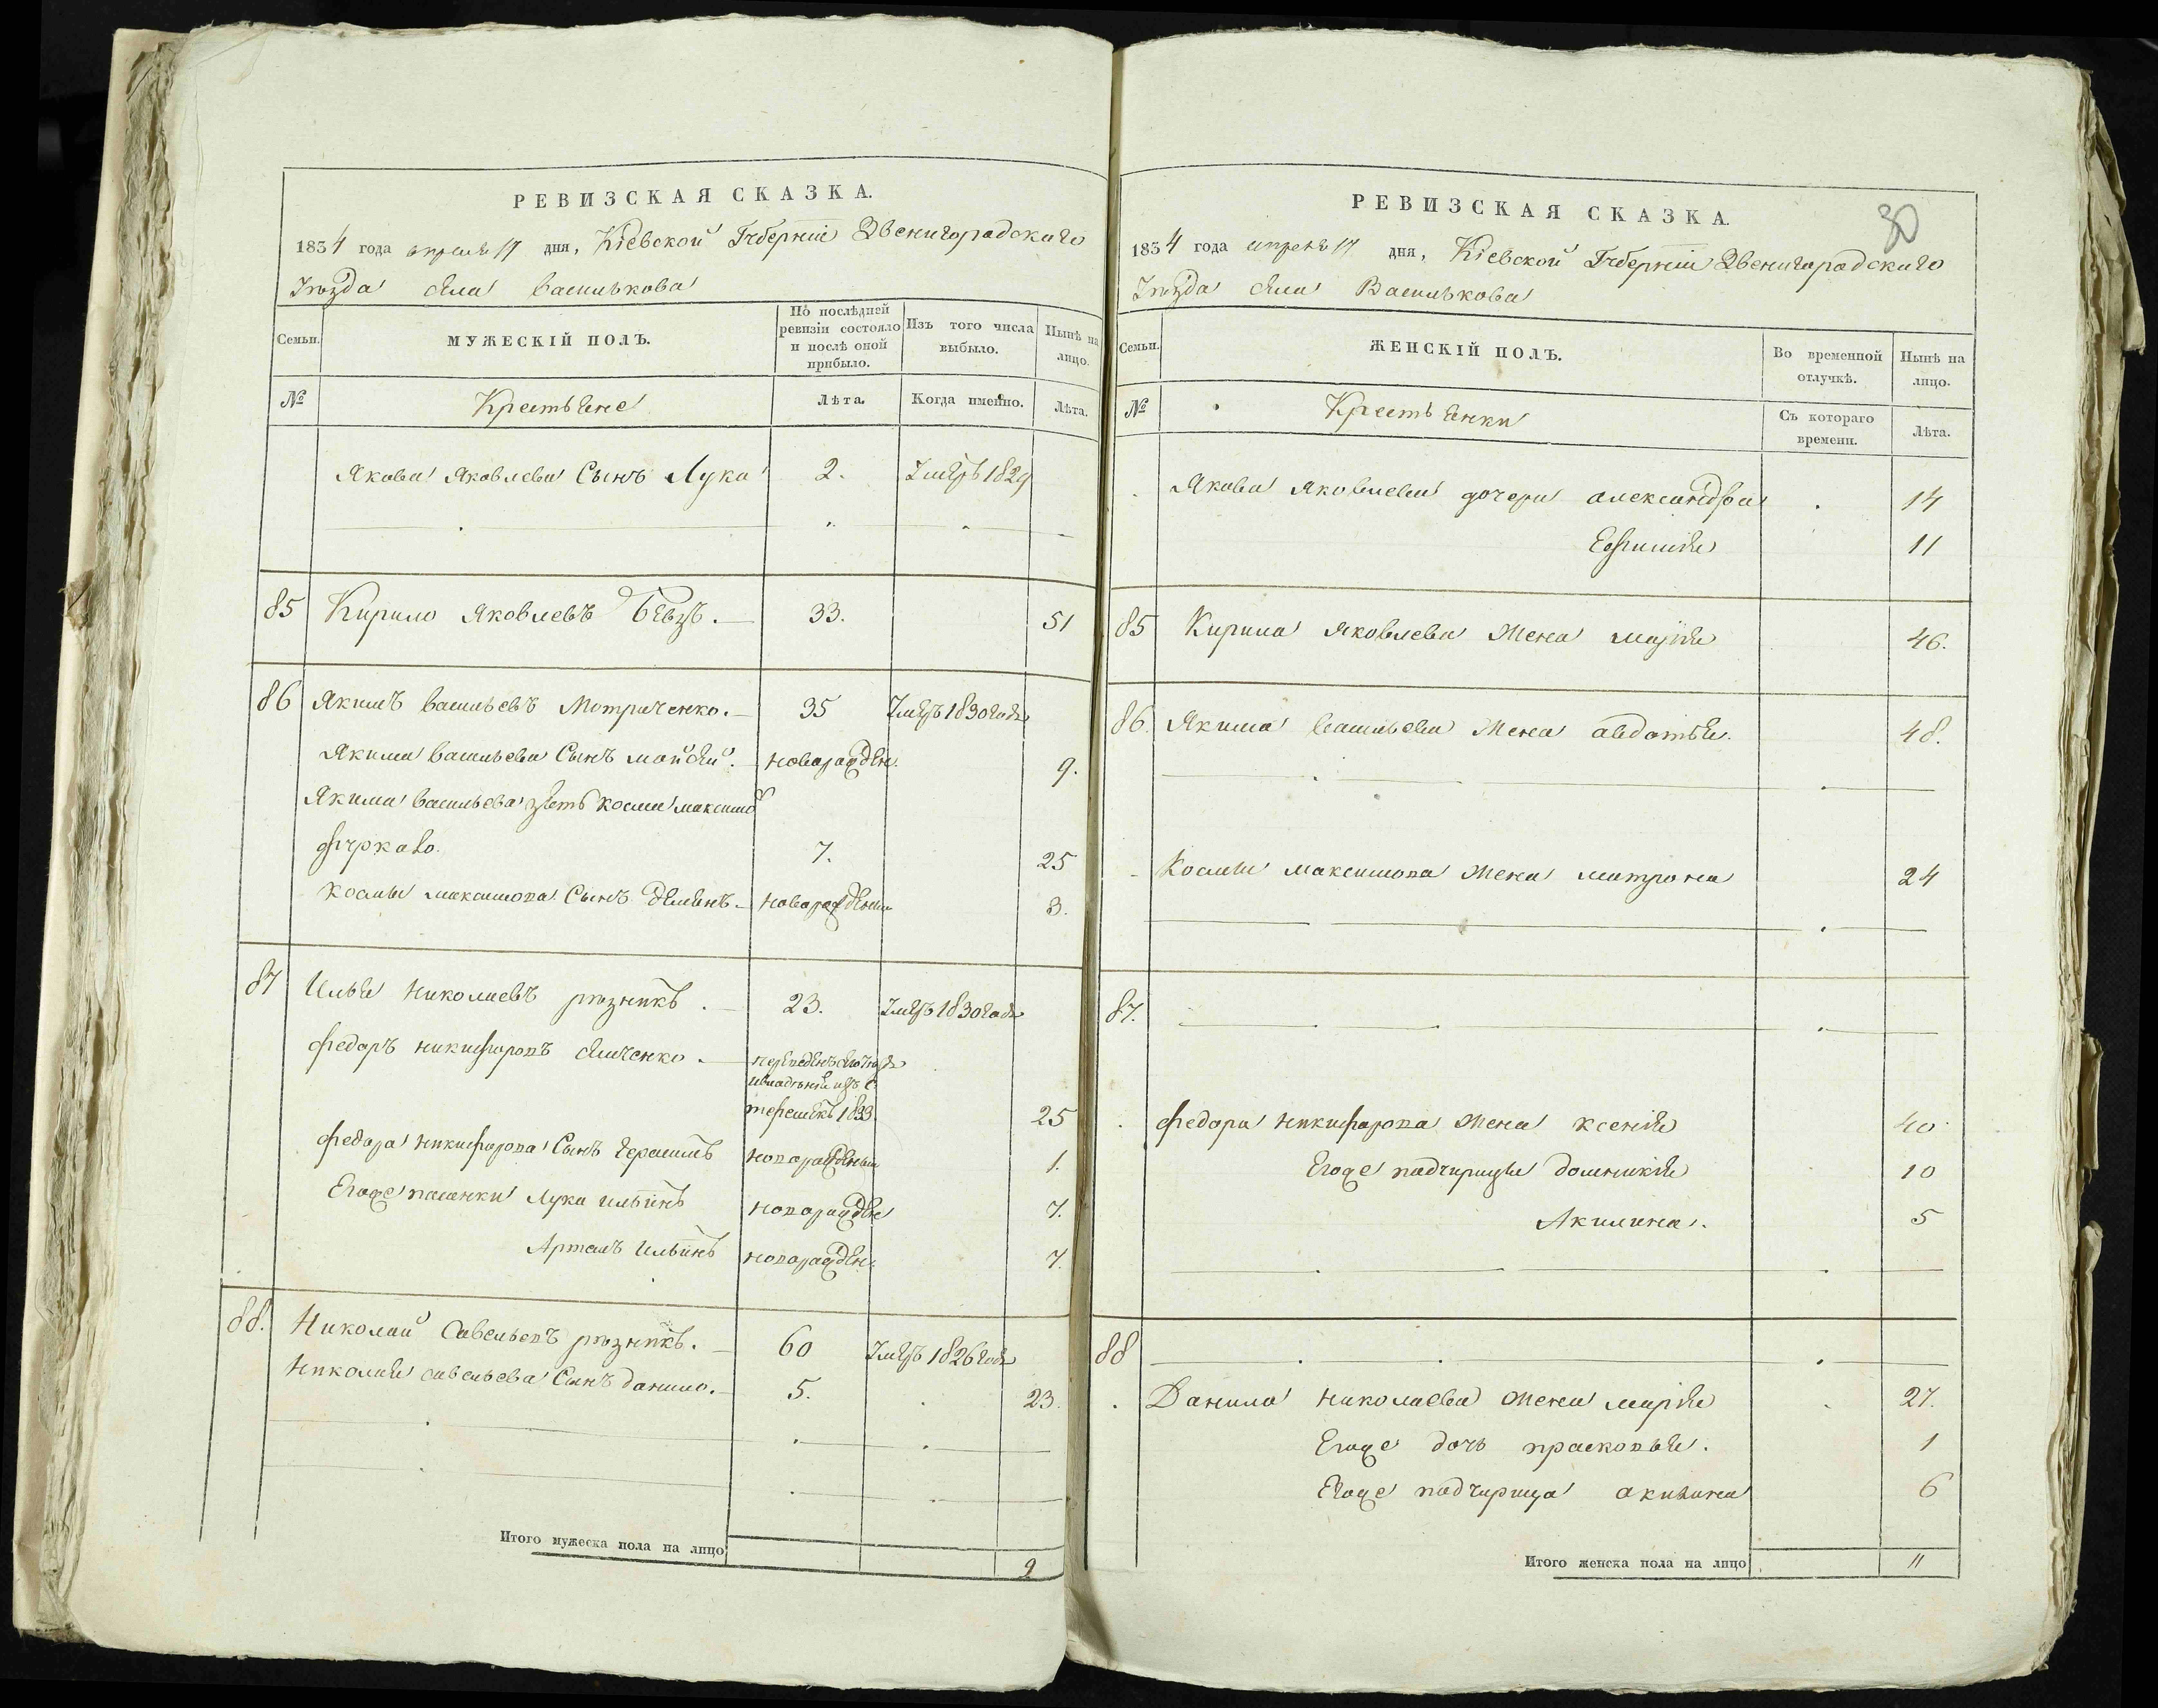 РЕВИЗСКАЯ СКАЗКА.
1834 года апреля 17 дня, Кіевской Губерніи Звенигородскаго
Уѣзда села Василькова
Семьи.
МУЖЕСКІЙ ПОЛЪ.
По послѣдней ревизіи состояло и послѣ оной прибыло.
Изъ того числа выбыло.
Нынѣ на лицо.
№
Крестьяне
Лѣта.
Когда именно.
Лѣта.
Якова Яковлева Сынъ Лука 2. Умеръ 1829
85 Кирило Яковлевъ 33. 51
86 Якимъ Васильевъ Мотриченко. 35 Умеръ 1830 года
Якима Васильева Сынъ Мойсей. новорожден. 9.
Якима Васильева зять Косма Максимов
7. 25
Космы Максимова Сынъ Демянъ новорожденны 3.
87 Илья Николаевъ рѣзникъ. 23. Умеръ 1830 года
Федоръ Никифоровъ
1833. 25
Федора Никифорова Сынъ Герасимъ новорожденный 1.
Егоже пасынки Лука Ильинъ новорожден 7.
Артемъ Ильинъ новорожден. 7.
88. Николай Савельевъ рѣзникъ. 60 Умеръ 1826 года
Николая Савельева Сынъ Данило. 5. 23.
Итого мужеска пола на лицо 9
РЕВИЗСКАЯ СКАЗКА.
30
1834 года апреля 17 дня, Кіевской Губерніи Звенигородскаго
Уѣзда села Василькова
Семьи.
ЖЕНСКІЙ ПОЛЪ.
Во временной отлучкѣ.
Нынѣ на лицо.
№
Крестьянки
Съ котораго времени.
Лѣта.
Якова Яковлева дочери Александра 14
Ефимія 11
85 Кирила Яковлева Жена Марія 46.
86. Якима Васильева Жена Авдотья. 48.
Космы Максимова Жена Матрона 24
87.
Федора Никифорова Жена Ксенія 40
Егоже падчирицы Домникія 10
Акилина. 5
88
Данила Николаева Жена Марія 27.
Егоже дочь Прасковья. 1
Егоже падчирица Акилина 6
Итого женска пола на лицо 11